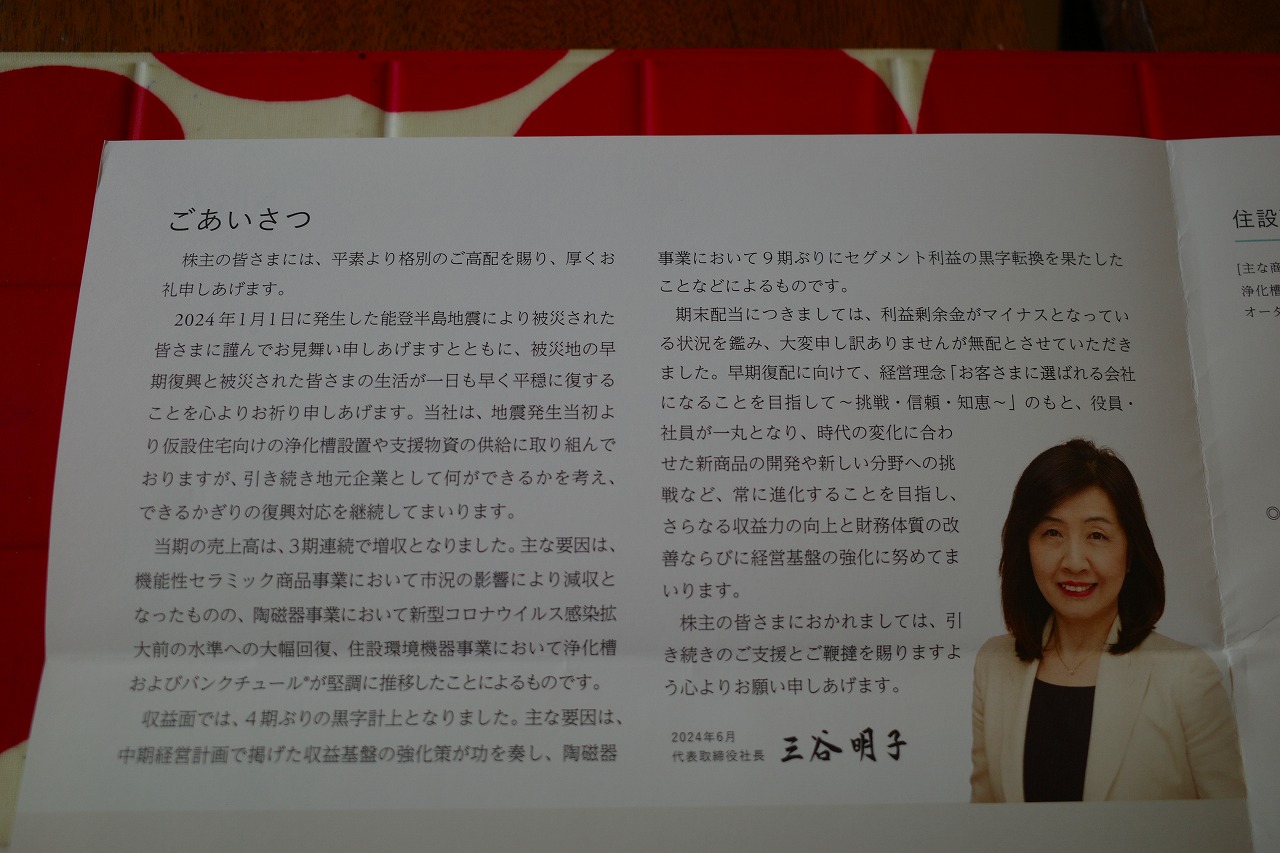 ごあいさつ
株主の皆さまには、平素より格別のご高配を賜り、厚くお
礼申しあげます。
2024年1月1日に発生した能登半島地震により被災された
皆さまに謹んでお見舞い申しあげますとともに、被災地の早
期復興と被災された皆さまの生活が一日も早く平穏に復する
ことを心よりお祈り申しあげます。当社は、地震発生当初よ
り仮設住宅向けの浄化槽設置や支援物資の供給に取り組んで
おりますが、引き続き地元企業として何ができるかを考え、
できるかぎりの復興対応を継続してまいります。
当期の売上高は、3期連続で増収となりました。主な要因は、
機能性セラミック商品事業において市況の影響により減収と
なったものの、陶磁器事業において新型コロナウイルス感染拡
大前の水準への大幅回復、住設環境機器事業において浄化槽
およびバンクチュール®が堅調に推移したことによるものです。
収益面では、4期ぶりの黒字計上となりました。主な要因は、
中期経営計画で掲げた収益基盤の強化策が功を奏し、陶磁器
事業において9期ぶりにセグメント利益の黒字転換を果たした
ことなどによるものです。
期末配当につきましては、利益剰余金がマイナスとなってい
る状況を鑑み、大変申し訳ありませんが無配とさせていただき
ました。早期復配に向けて、経営理念「お客さまに選ばれる会社
になることを目指して～挑戦・信頼・知恵～」のもと、役員・
社員が一丸となり、時代の変化に合わ
せた新商品の開発や新しい分野への挑
戦など、常に進化することを目指し、
さらなる収益力の向上と財務体質の改
善ならびに経営基盤の強化に努めてま
いります。
株主の皆さまにおかれましては、引
き続きのご支援とご鞭撻を賜りますよ
う心よりお願い申しあげます。
2024年6月
代表取締役社長 三谷明子
住設
[主な商
浄化槽
オータ
◎